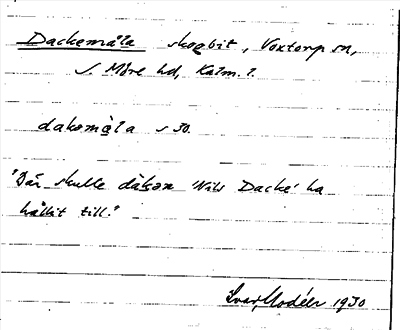 Dackemåla skogbit, Voxtorp sn,
S. Möre hd, Kalm. l.
dakəmåla s 30.
"Där skulle dakən Nils Dacke ha
hållit till."
Ivar Modéer 1930